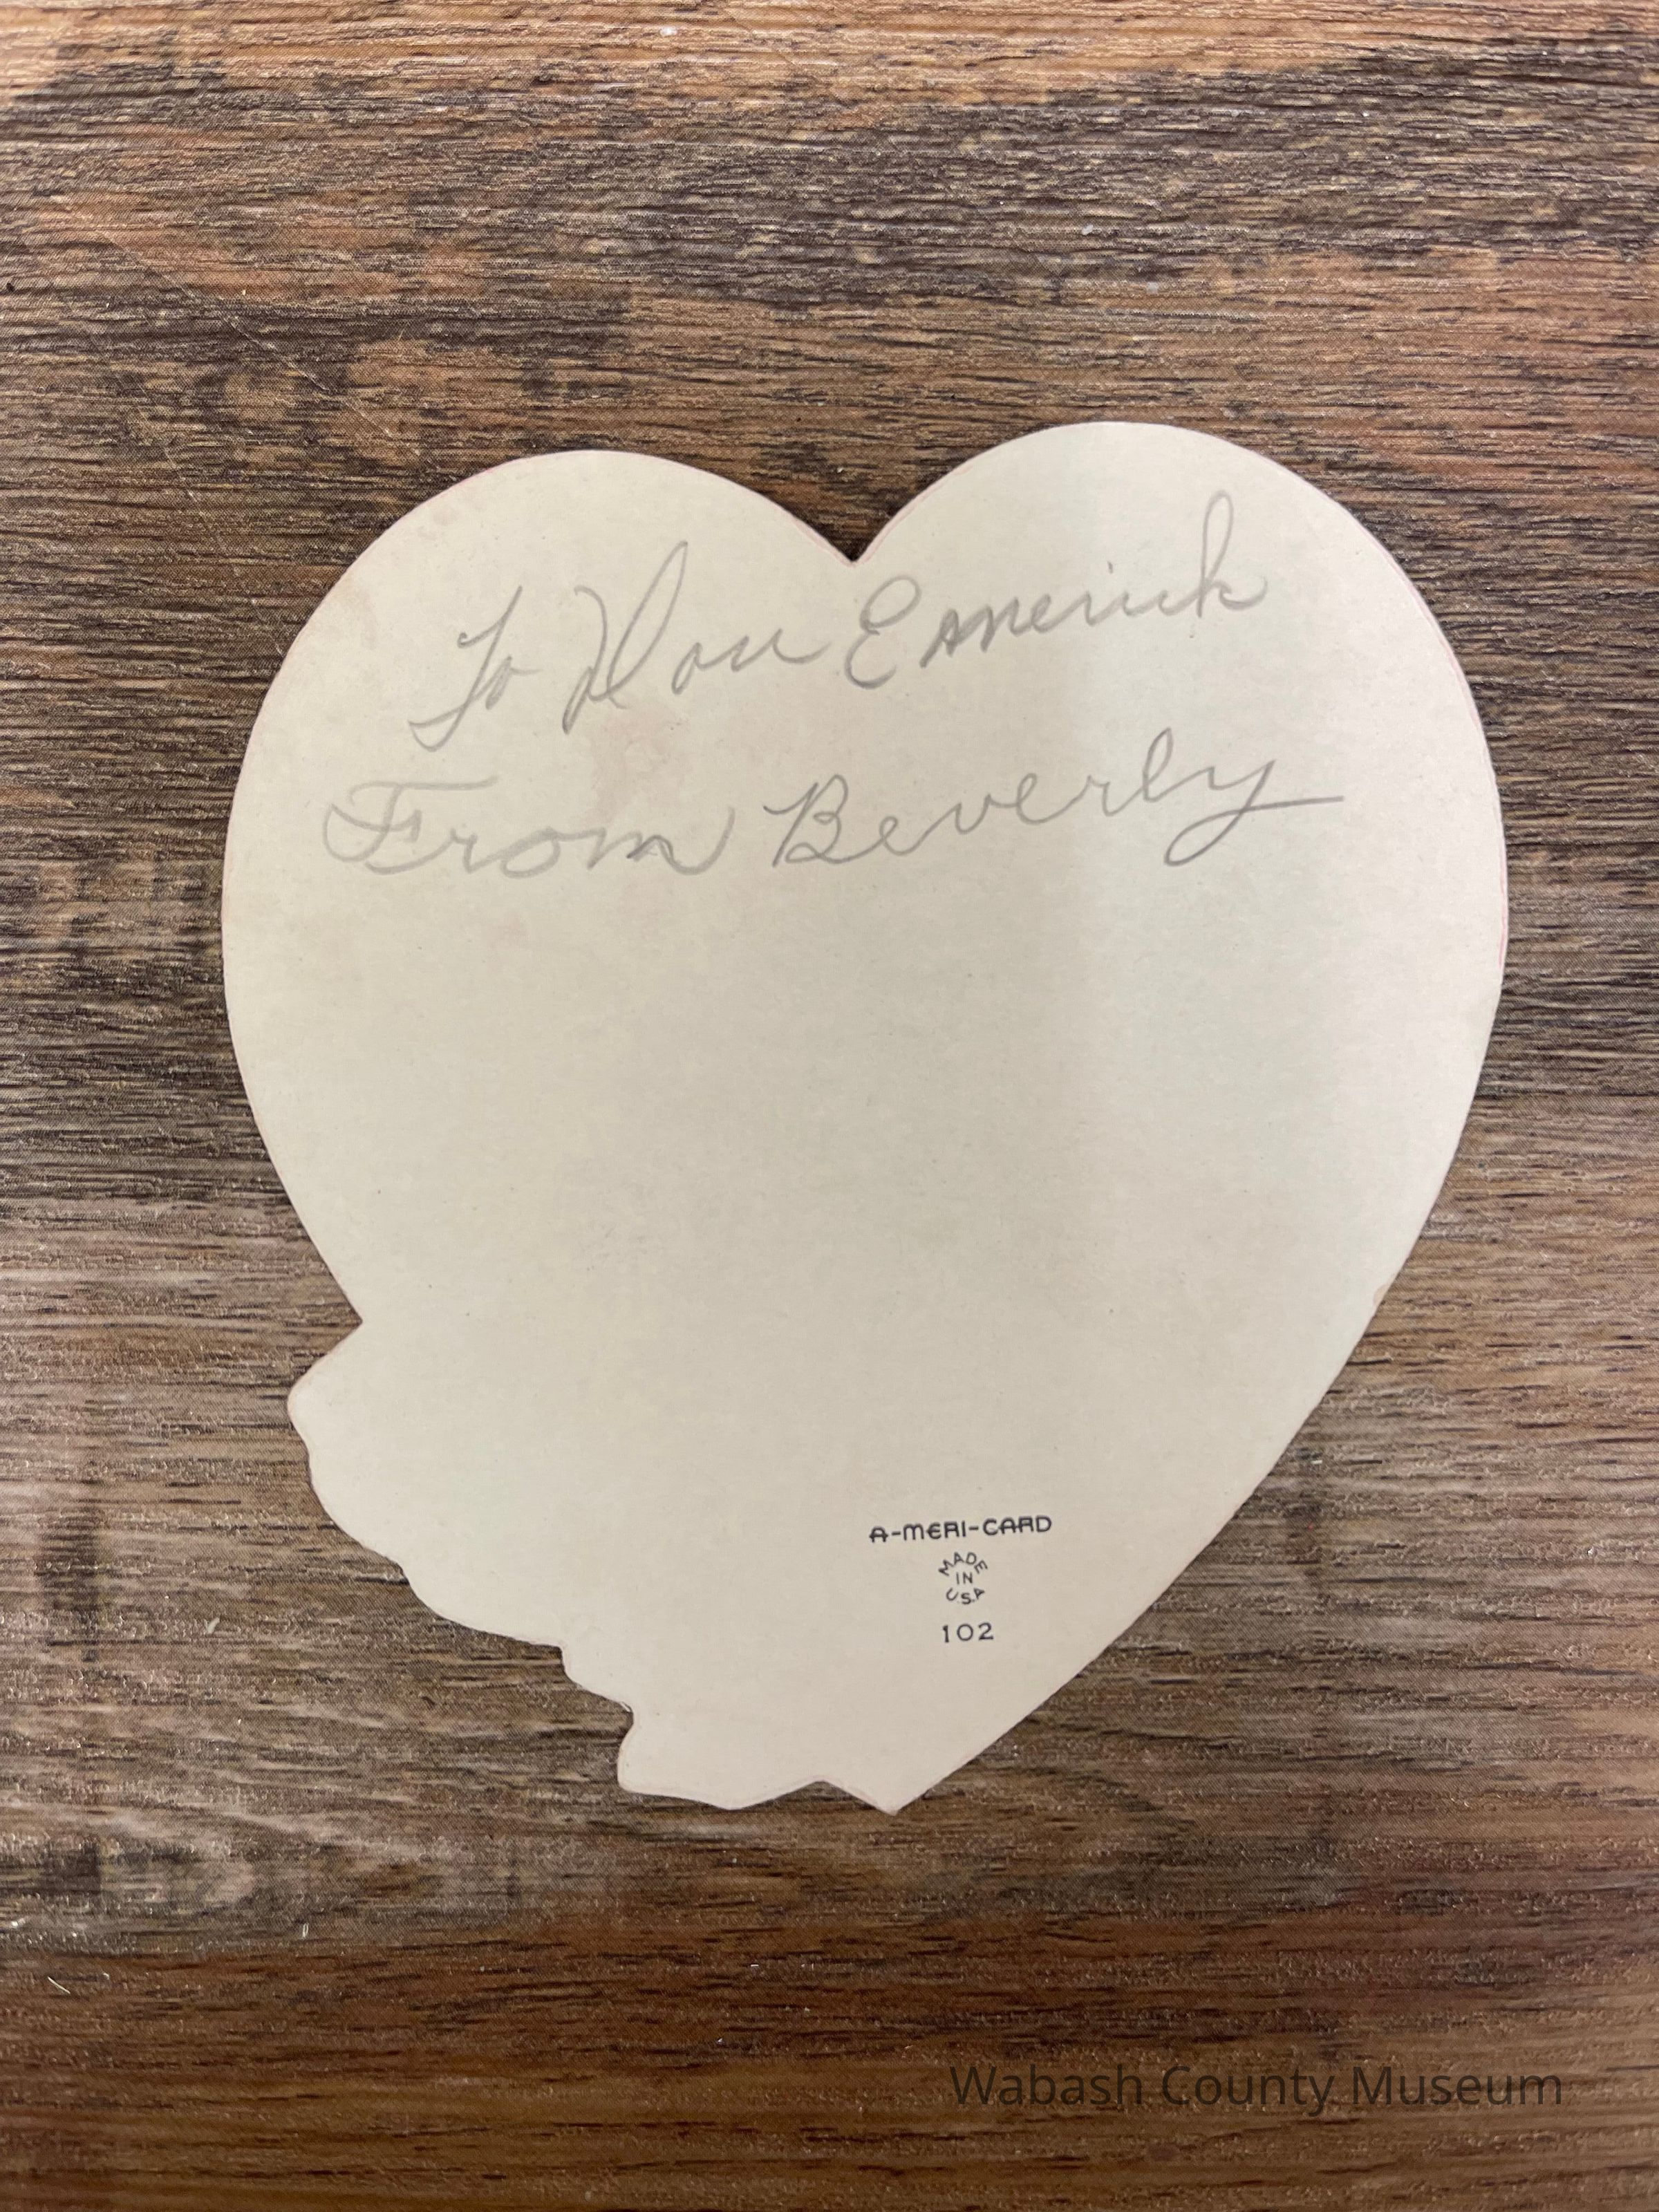 To Don Emerick
From Beverly
A-MERI-CARD
MADE
IN
U.S.A
102
Wabash County Museum